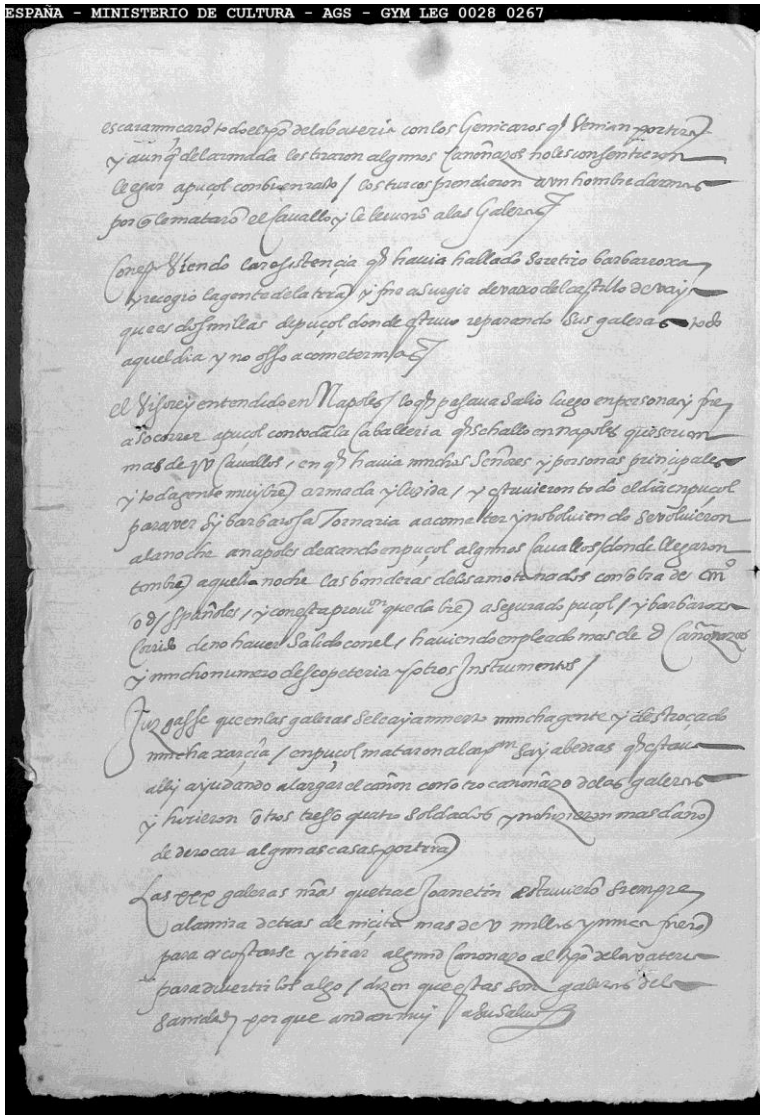 ESPAÑA - MINISTERIO DE CULTURA - AGS - GYM_LEG_0028_0267
escaramuçarõ todo el tpõ de la bateria con los Genicaros q̃ venian por tierra
y aunq̃ de la armada les tiraron algunos Cañonazos no les consentieron
llegar a puçol con buen rato / los turcos prendieron a un hombre darmas
por q̃ le mataro el Cavallo y le llevarõ a las Galeras
Viendo la resistençia q̃ havia hallado se retiro barbarroxa
y recogio la gente de la tierra y fue a surgir devaxo del castillo de vaya
que es dos millas de puçol donde estuvo reparando sus galeras todo
aquel dia y no osso acometer mas
el Visorey entendido en Napoles / lo q̃ pasava salio luego en persona y fue
a socorrer a puçol con toda la Cavalleria q̃ se hallo en napoles que serian
mas de Cavallos, en q̃ havia muchos Señores y personas principales
y toda gente muy bien armada y luzida / y estuvieron todo el dia en puçol
para ver sy barbarosa tornaria a acometer y no bolviendo se volvieron
a la noche a napoles dexando en puçol algunos Cavallos / donde llegaron
tambien aquella noche las banderas de los amotinados con obra de
españoles / y con esta quedo bien asegurado puçol / y barbaroxa
corrido de no haver salido con el / haviendo empleado mas de d Cañonazos
y mucho numero descopeteria y otros Instrumentos /
Juzgasse que en las galeras selea muerto mucha gente y destroçado
mucha xarçia / en puçol mataron al capan sayabedras q̃ estava
ally ayudando a largar el cañon con otro canonazo de las galeras
y hirieron otros tres o quatro soldados y no hizieron mas daño
de derocar algunas casas por tierra
Las galeras nr̃as que trae Joanetin estuvierõ siempre
a la mira detras de niçita mas de v millas y nunca fuerõ
para acostarse y tirar algund Canonazo al tpõ de la bateria
para divertirlos algo / dizen que estas son galeras de la
sanidad porque andan muy a su salvo